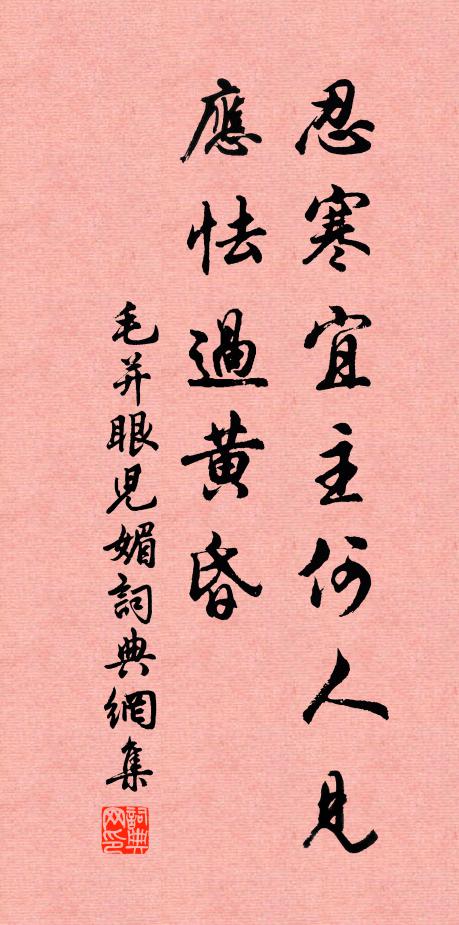 忍寒宜主何人見
應怯過黃昏
毛并眼兒媚詞典網集
詞典网印